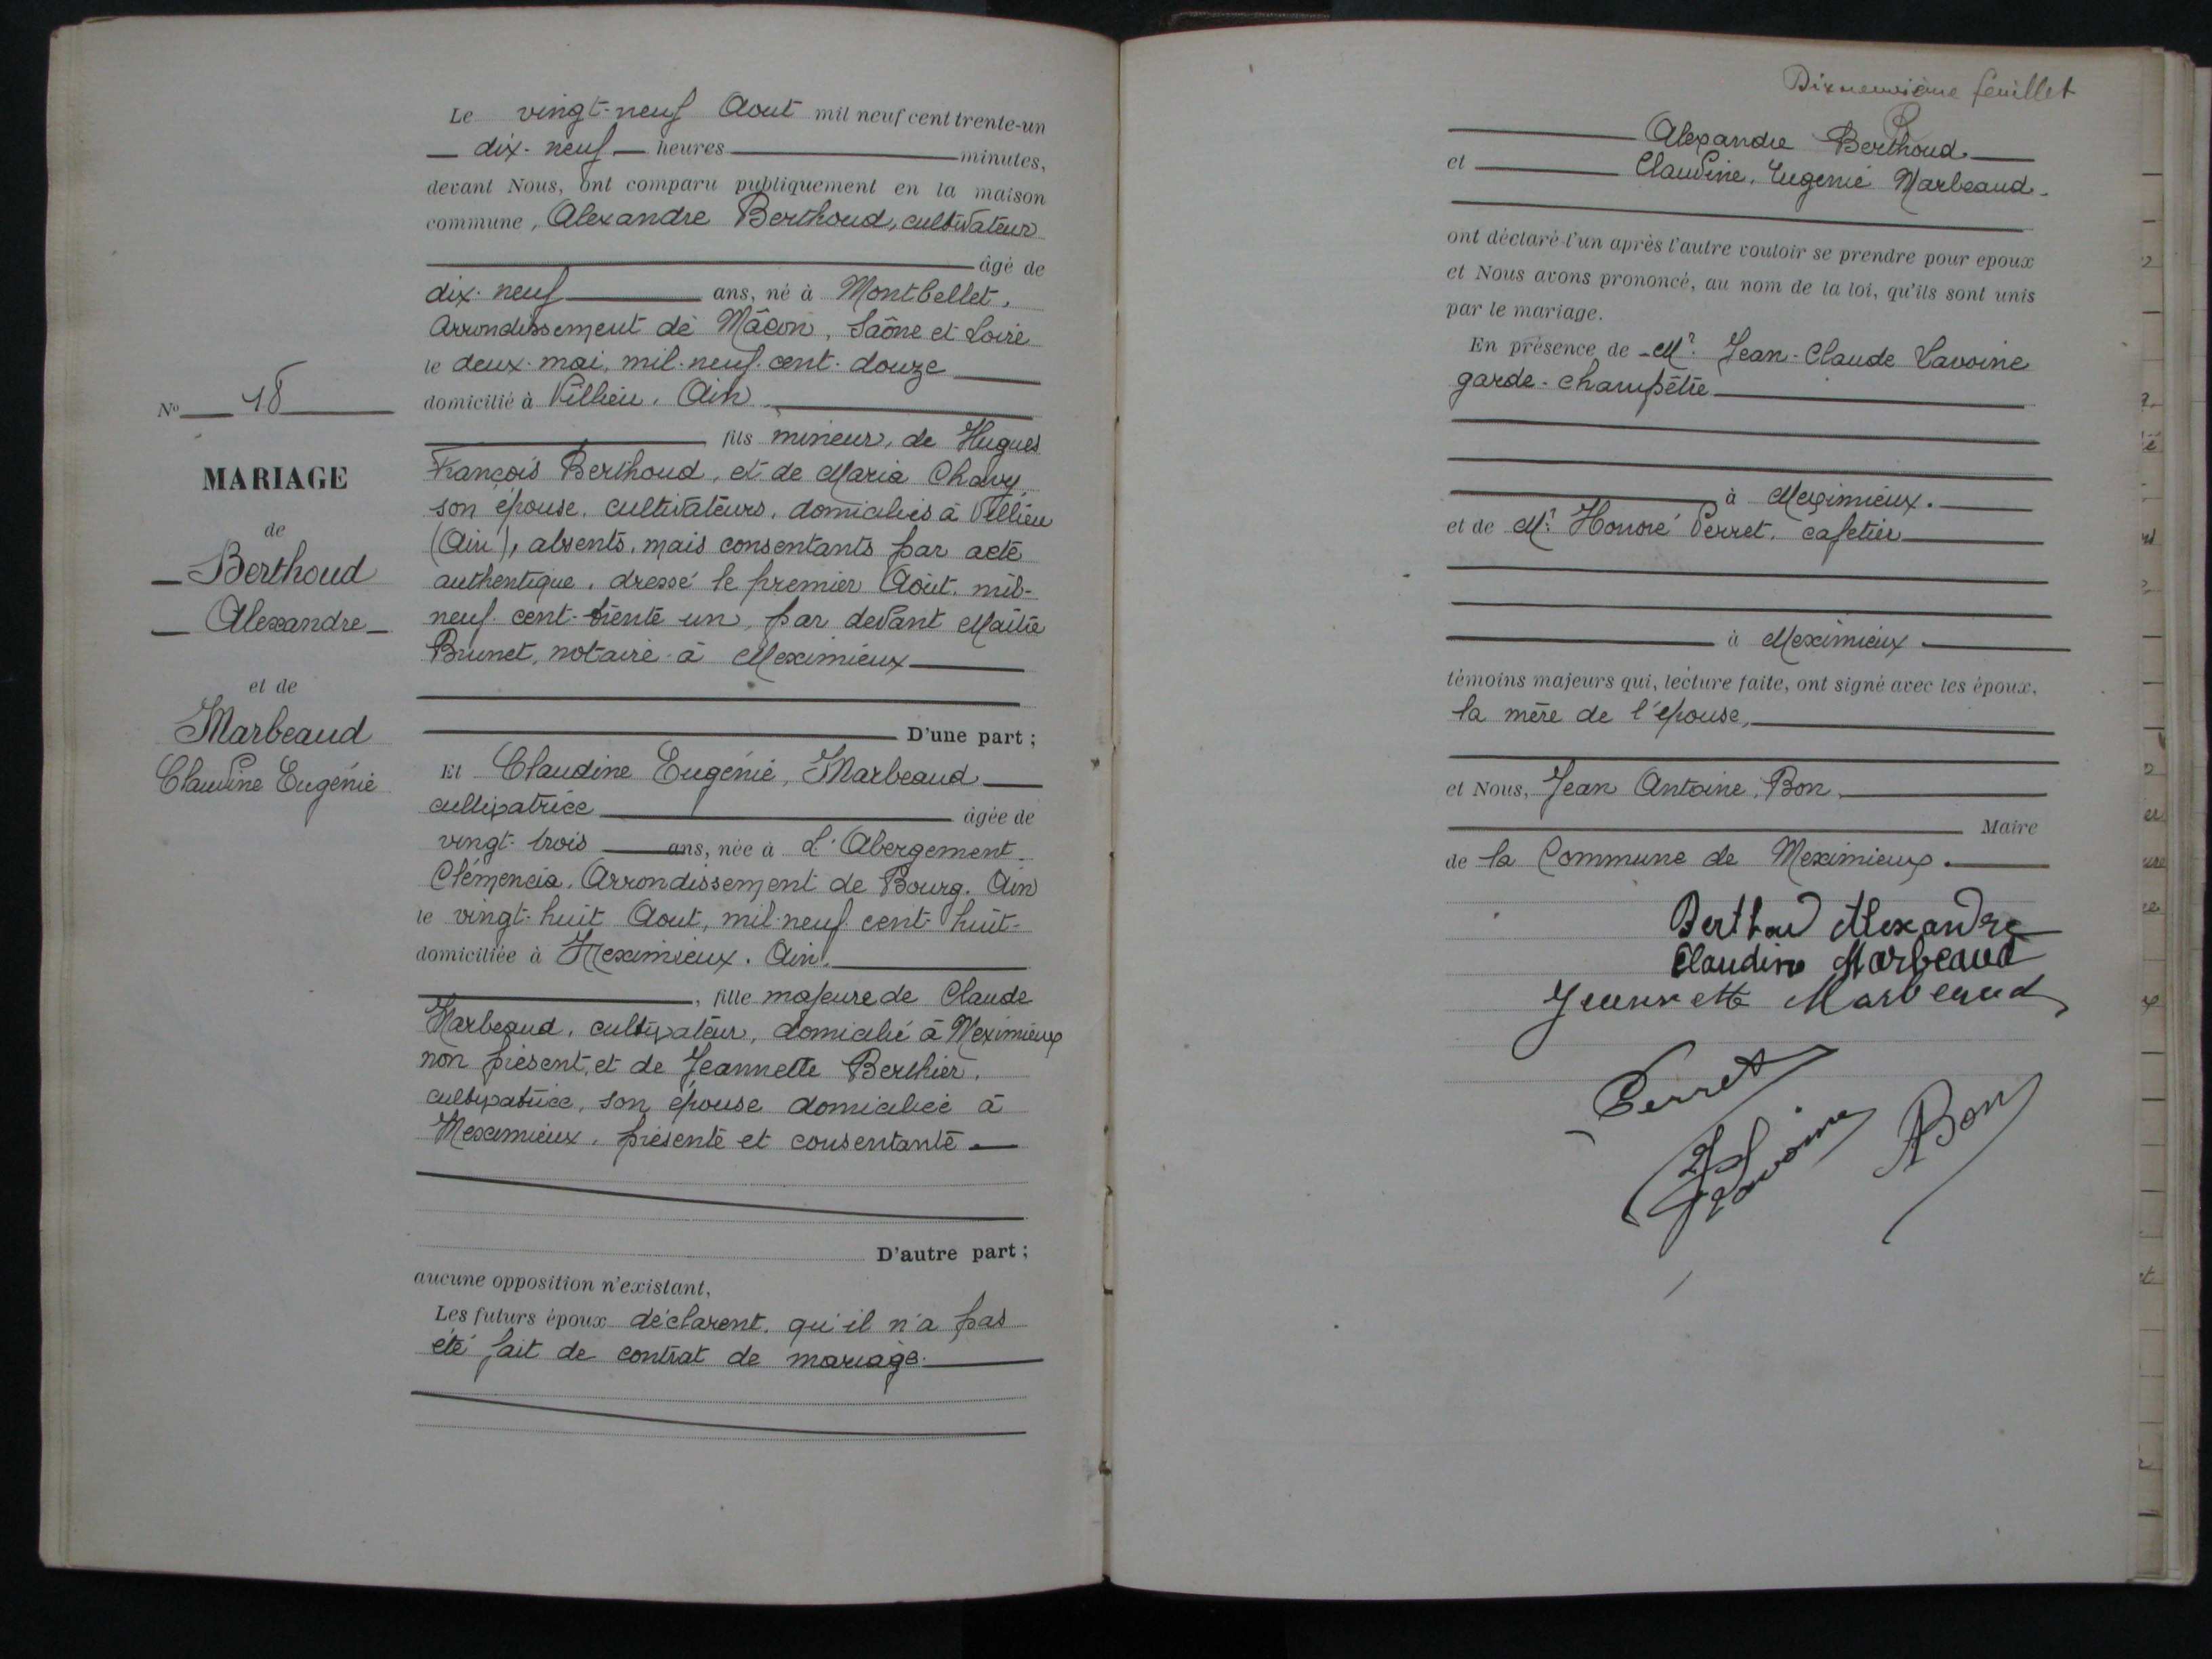 Le vingt-neuf Aout mil neuf cent trente-un
dix-neuf heures minutes,
devant Nous, ont comparu publiquement en la maison
commune, Alexandre Berthoud, cultivateur
âgé de
dix-neuf ans, né à Montbellet,
Arrondissement de Mâcon, Saône et Loire
le deux mai, mil-neuf-cent-douze
domicilié à Villieu, Ain
fils mineur, de Hugues
François Berthoud, et de Maria Chavy,
son épouse, cultivateurs, domiciliés à Villieu
(Ain), absents, mais consentants par acte
authentique, dressé le premier Août, mil-
neuf-cent-trente un, par devant Maître
Brunet, notaire à Meximieux
D'une part;
N° 18
MARIAGE
de
Berthoud
Alexandre
et de
Marbeaud
Claudine Eugénie
Et Claudine Eugénie, Marbeaud
cultivatrice âgée de
vingt-trois ans, née à L'Abergement
Clémencia, Arrondissement de Bourg. Ain
le vingt-huit Aout, mil-neuf-cent-huit-
domiciliée à Meximieux. Ain.
, fille majeure de Claude
Marbeaud, cultivateur, domicilié à Meximieux
non présent, et de Jeannette Berthier,
cultivatrice, son épouse domiciliée à
Meximieux, présente et consentante
D'autre part;
aucune opposition n'existant,
Les futurs époux déclarent, qu'il n'a pas
été fait de contrat de mariage.
Dixneuvième feuillet
Alexandre Berthoud
et Claudine, Eugénie Marbeaud
ont déclaré l'un après l'autre vouloir se prendre pour epoux
et Nous avons prononcé, au nom de la loi, qu'ils sont unis
par le mariage.
En présence de Mr Jean-Claude Lavoine
garde-champêtre
à Meximieux.
et de Mr Honoré Perret, cafetier
à Meximieux
témoins majeurs qui, lecture faite, ont signé avec les époux,
la mère de l'épouse,
et Nous, Jean Antoine, Bon,
Maire
de la Commune de Meximieux.
Berthoud Alexandre
Claudine Marbeaud
Jeannette Marbeaud
Perret
Lavoine
ABon